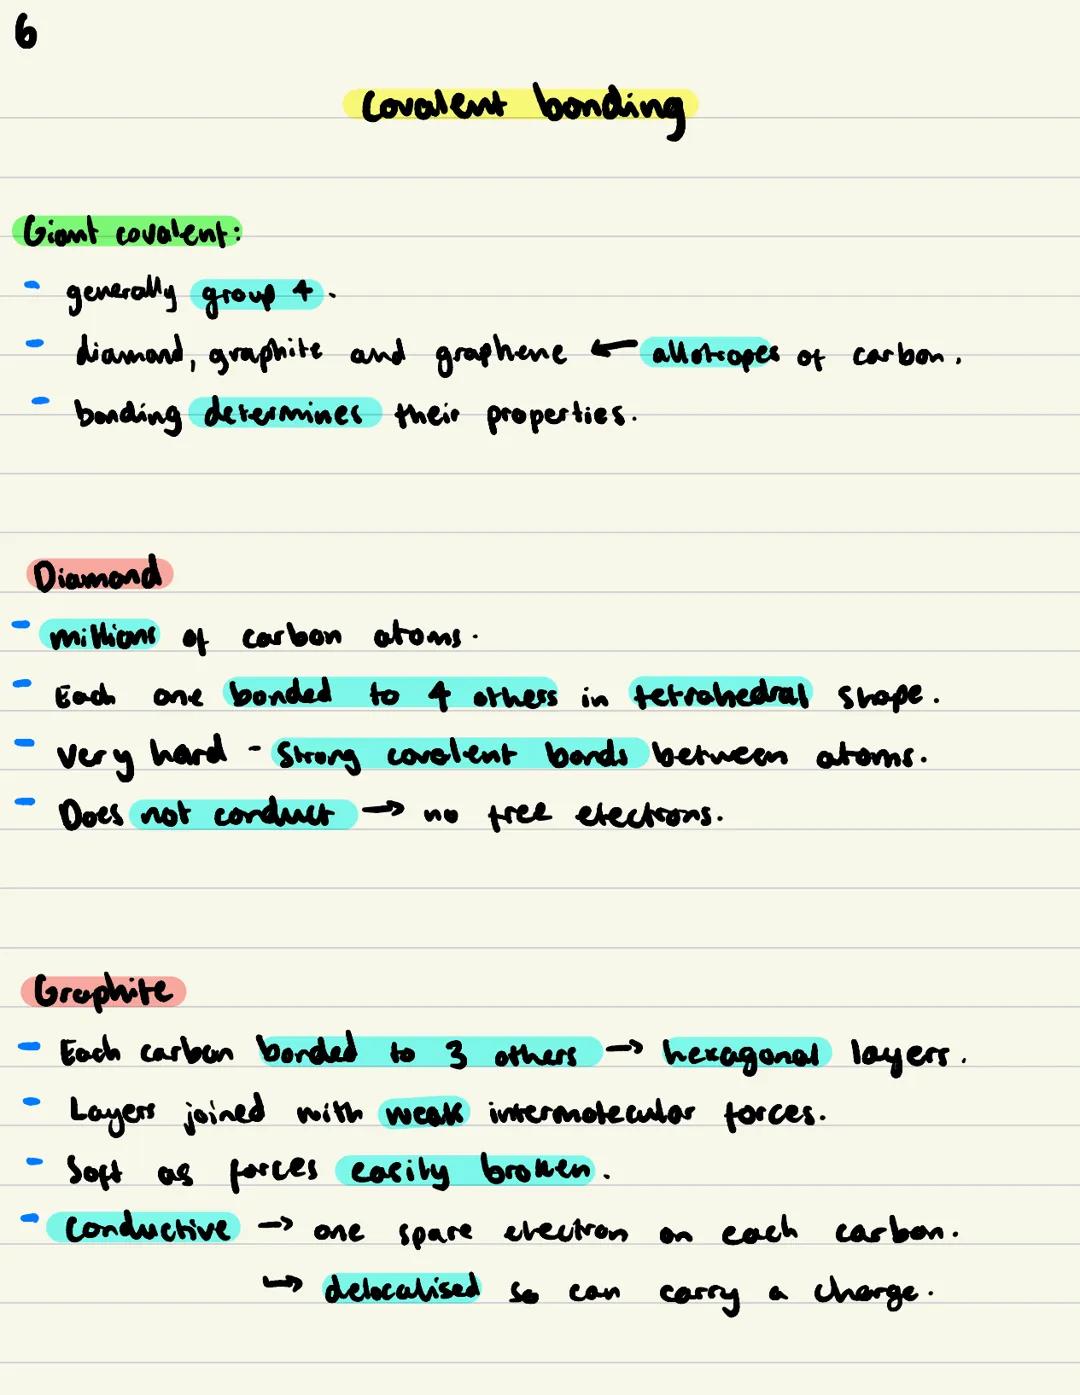 6
Covalent bonding
Giant covalent:
- generally group 4.
- diamond, graphite and graphene ← allotropes of carbon.
- bonding determines their properties.
Diamond
- millions of carbon atoms.
- Each one bonded to 4 others in tetrahedral shape.
- Very hard - Strong covalent bonds between atoms.
- Does not conduct → no free electrons.
Graphite
- Each carbon bonded to 3 others → hexagonal layers.
- Layers joined with weak intermolecular forces.
- Soft as forces easily broken.
- Conductive → one spare electron on each carbon.
↳ delocalised so can carry a charge.